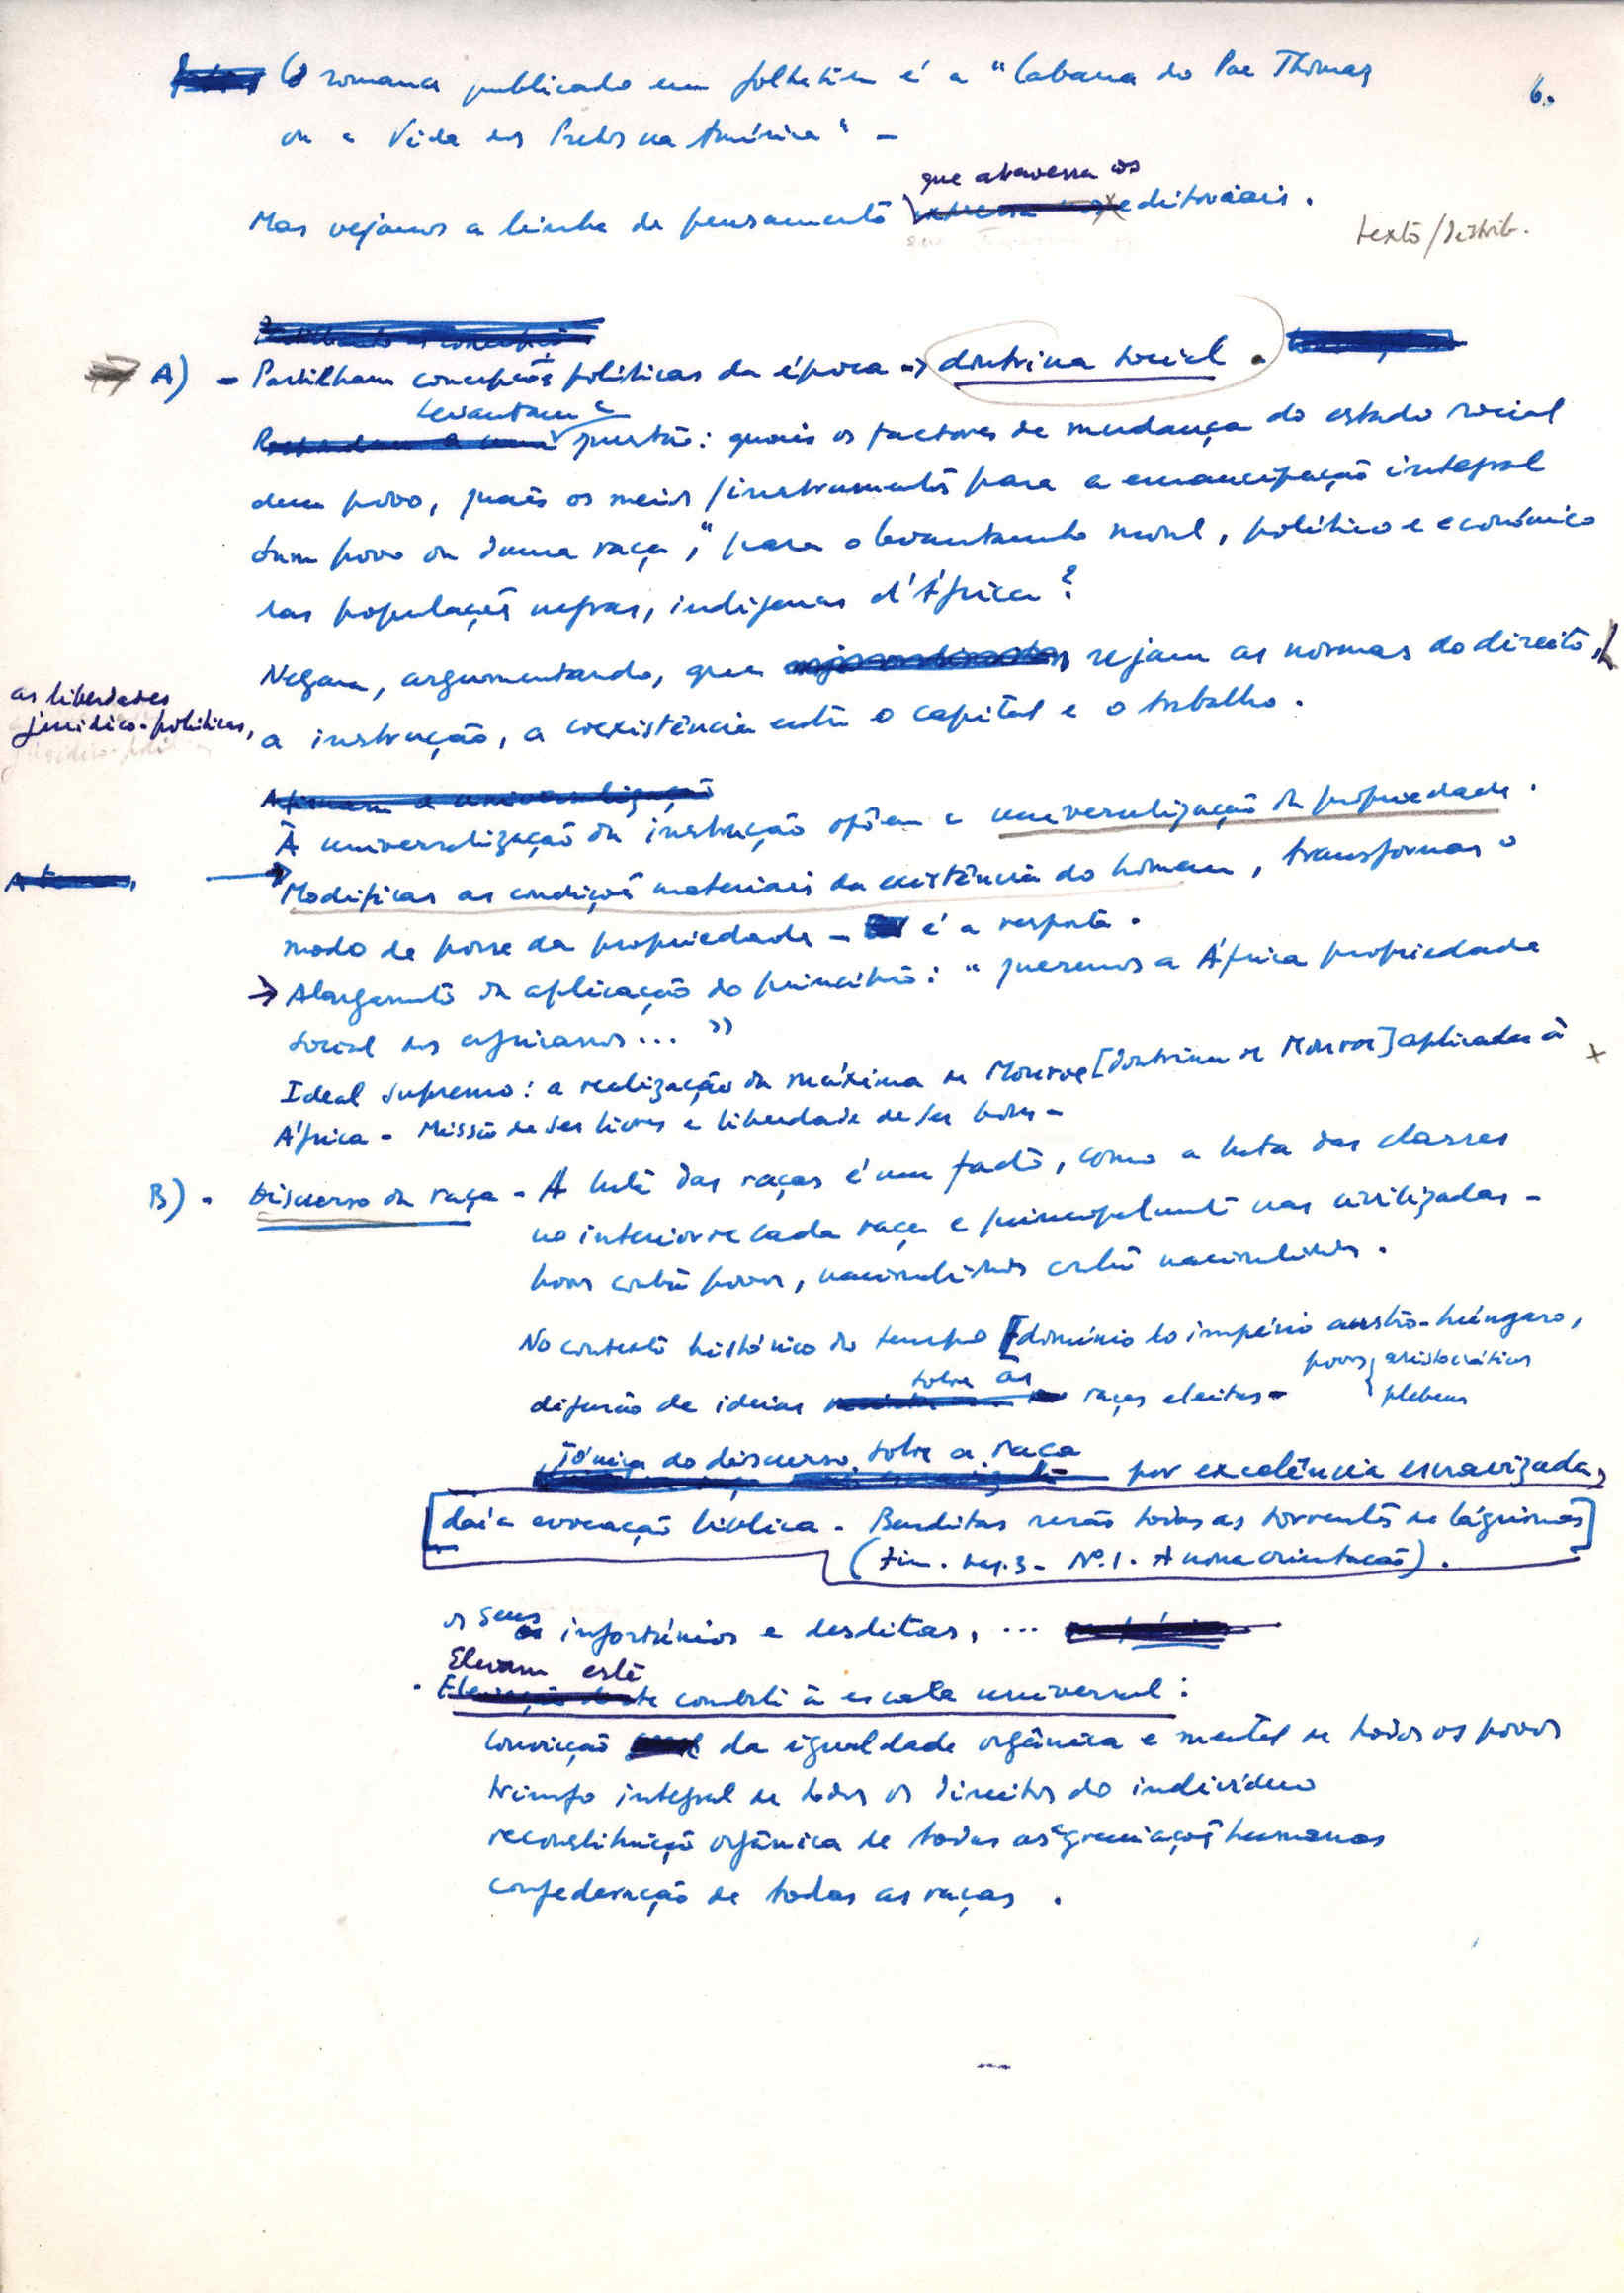 O romance publicado em folhetim é a "Cabana do Pae Thomaz
6.
ou a Vida dos Pretos na América" -
que atravessa os
Mas vejamos a linha de pensamento editoriais.
texto/distrib.
A) - Partilham concepções políticas da época -> doutrina social.
Levantam a
questão: quais os factores de mudança do estado social
dum povo, quais os meios/instrumentos para a emancipação integral
dum povo ou duma raça, "para o levantamento moral, político e económico
das populações negras, indígenas d'África?
Negam, argumentando, que rejam as normas do direito,
as liberdades
jurídico-políticas,
a instrução, a coexistência entre o capital e o trabalho.
Afirmam a universalização
À universalização da instrução opõem a universalização da propriedade.
Modificar as condições materiais da existência do homem, transformar o
modo de posse da propriedade - é a resposta.
-> Alargamento da aplicação do princípio: "queremos a África propriedade
social dos africanos... "
Ideal supremo: a realização da máxima de Monroe [doutrina de Monroe] aplicada à
África - Missão de ser livres e liberdade de ser bons -
B) - Discurso da raça - A luta das raças é um facto, como a luta das classes
no interior de cada raça e principalmente nas civilizadas -
povos contra povos, nacionalidades contra nacionalidades.
No contexto histórico do tempo [domínio do império austro-húngaro,
difusão de ideias sobre as raças eleitas - povos { aristocráticos
plebeus
Tónica do discurso sobre a raça por excelência escravizada,
[daí a evocação bíblica - Benditas serão todas as torrentes de lágrimas]
(Fim. pag. 3 - Nº. 1. A nova orientação).
os seus infortúnios e desditas, ...
Elevam este
combate à escala universal:
convicção da igualdade orgânica e mental de todos os povos
triunfo integral de todos os direitos do indivíduo
reconstituição orgânica de todas as agremiações humanas
confederação de todas as raças.